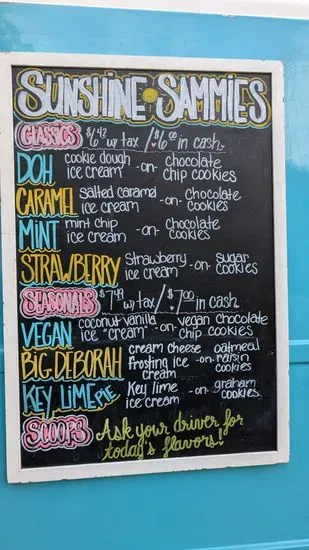 SUNSHINE SAMMIES
CLASSICS $6.42 w/ tax / $6.00 in cash.
DOH cookie dough ice cream -on- chocolate chip cookies
CARAMEL salted caramel ice cream -on- chocolate cookies
MINT mint chip ice cream -on- chocolate cookies
STRAWBERRY strawberry ice cream -on- sugar cookies
SEASONALS $7.49 w/ tax / $7.00 in cash
VEGAN coconut vanilla ice "cream" -on- vegan chocolate chip cookies
BIG DEBORAH cream cheese frosting ice cream -on- oatmeal raisin cookies
KEY LIME PIE Key lime ice cream -on- graham cookies.
SCOOPS Ask your driver for today's flavors!